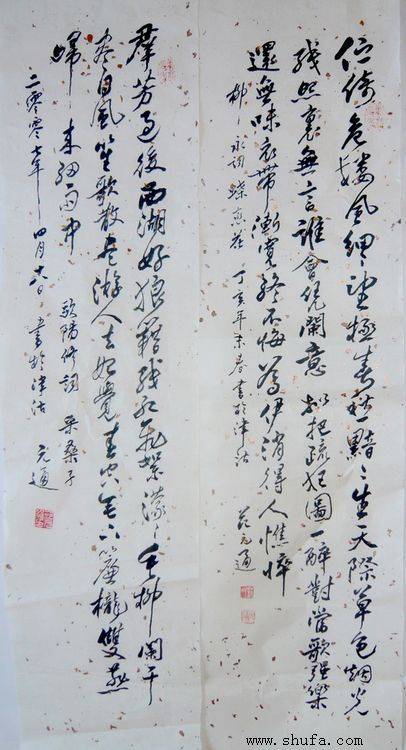 伫倚危楼風細〻望極春愁黯〻生天際草色烟光
残照裏無言誰會凭闌意拟把疏狂圖一醉對當歌强樂
還無味衣帶漸寬終不悔為伊消得人憔悴
柳永詞蝶恋花 丁亥年末春書於津沽 元通
羣芳过後西湖好狼籍残红飛絮濛〻垂柳闌干
盡日風笙歌散盡游人去始覺春空垂下簾櫳雙燕
歸来細雨中 歐陽修詞 采桑子
二零零七年四月 日書於津沽 元通
www.shufa.com